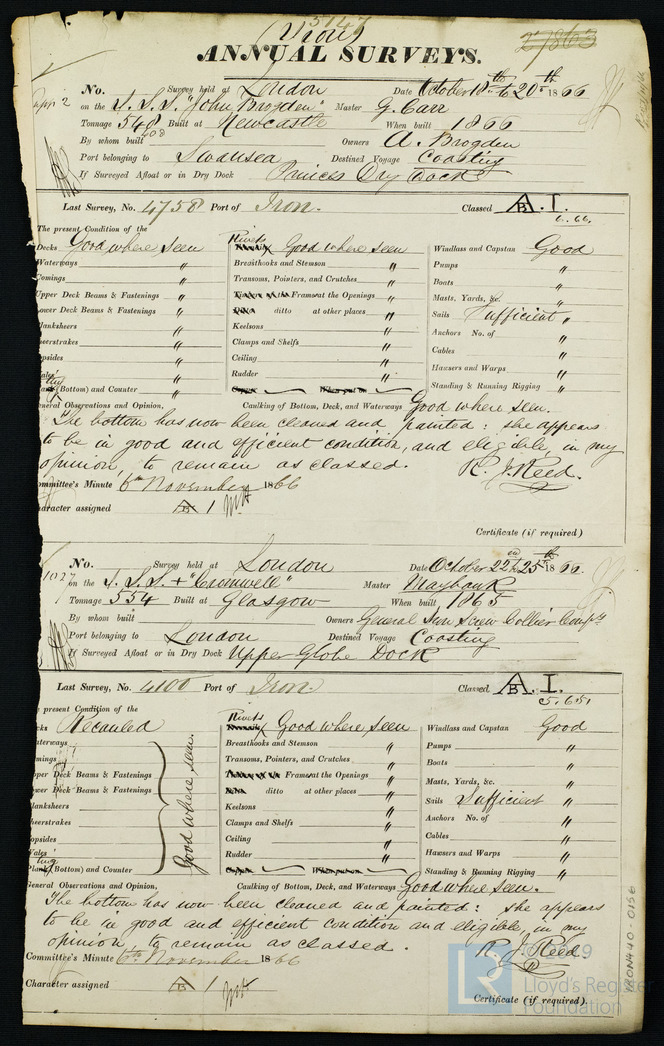 5147
(Iron)
27863
ANNUAL SURVEYS.
No. Survey held at London Date October 18th to 20th 1866
on the S.S.S. "John Brogden" Master G. Carr
Tonnage 548 Built at Newcastle When built 1866
By whom built Owners A. Brogden
Port belonging to Swansea Destined Voyage Coasting
If Surveyed Afloat or in Dry Dock Princes Dry Dock
Last Survey, No. 4758 Port of Iron. Classed A.1.
6.66.
The present Condition of the
Decks Good where seen Rivets Good where seen Windlass and Capstan Good
Waterways " Breasthooks and Stemson " Pumps "
Comings " Transoms, Pointers, and Crutches " Boats "
Upper Deck Beams & Fastenings " Frames at the Openings " Masts, Yards, &c. "
Lower Deck Beams & Fastenings " ditto at other places " Sails Sufficient "
Planksheers " Keelsons " Anchors No. of "
Sheerstrakes " Clamps and Shelfs " Cables "
Topsides " Ceiling " Hawsers and Warps "
Wales " Rudder " Standing & Running Rigging "
(Bottom) and Counter "
General Observations and Opinion, Caulking of Bottom, Deck, and Waterways Good where seen.
The bottom has now been cleaned and painted: she appears
to be in good and efficient condition, and eligible, in my
opinion, to remain as classed. R. J. Reed.
Committee's Minute 6th November 1866
Character assigned A 1
Certificate (if required)
No. Survey held at London Date October 22 on 25th 1866.
on the S.S.S. + "Cromwell" Master Maybank
Tonnage 554 Built at Glasgow When built 1865
By whom built Owners General Iron Screw Collier Compy
Port belonging to London Destined Voyage Coasting
If Surveyed Afloat or in Dry Dock Upper Globe Dock
Last Survey, No. 4100 Port of Iron. Classed A.1.
5.65.
present Condition of the
Decks Recaulked Rivets Good where seen Windlass and Capstan Good
Waterways Breasthooks and Stemson " Pumps "
Comings Transoms, Pointers, and Crutches " Boats "
Upper Deck Beams & Fastenings Frames at the Openings " Masts, Yards, &c. "
Lower Deck Beams & Fastenings ditto at other places " Sails Sufficient "
Planksheers Keelsons " Anchors No. of "
Sheerstrakes Clamps and Shelfs " Cables "
Topsides Ceiling " Hawsers and Warps "
Wales Rudder " Standing & Running Rigging "
Good where seen.
Planking (Bottom) and Counter
General Observations and Opinion, Caulking of Bottom, Deck, and Waterways Good where seen.
The bottom has now been cleaned and painted: she appears
to be in good and efficient condition and eligible, in my
opinion, to remain as classed. R. J. Reed.
Committee's Minute 6th November 1866
Character assigned A 1
Certificate (if required).
IRON440-0156
© 2019
Lloyd's Register
Foundation